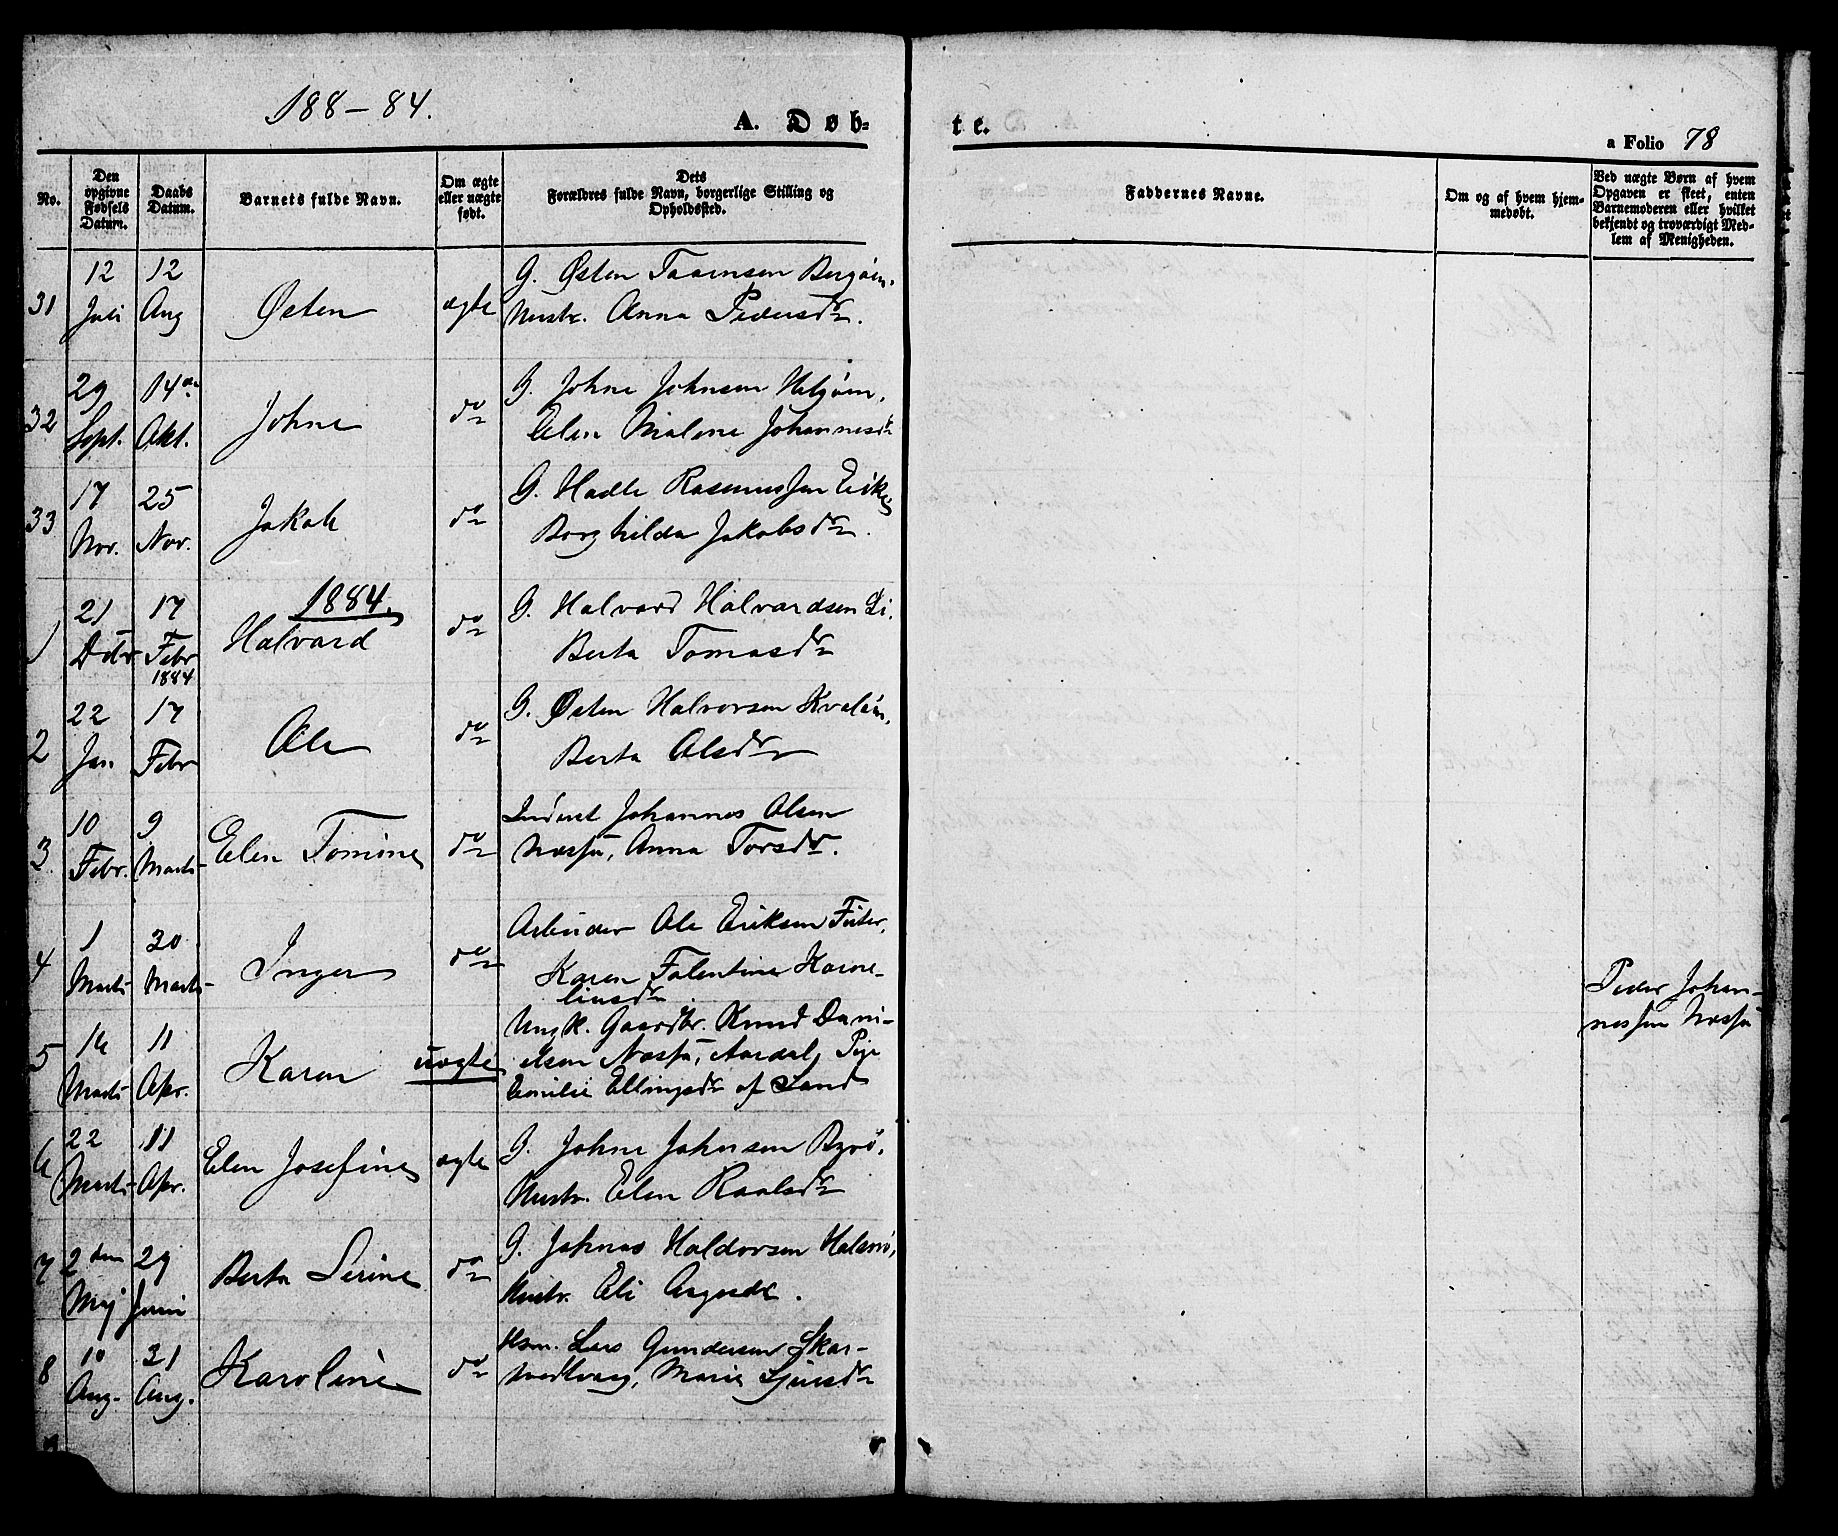 188-84.
A. Døb-
te.
a Folio 78
No.
Den opgivne Fødsels Datum.
Daabs Datum.
Barnets fulde Navn.
Om ægte eller uægte født.
Dets Forældres fulde Navn, borgerlige Stilling og Opholdssted.
Faddernes Navne.
Om og af hvem hjemmedøbt.
Ved uægte Børn af hvem Opgaven er skeet, enten Barnemoderen eller hvilket bekjendt og troværdigt Medlem af Menigheden.
31 12 Juli 12 Aug Østen ægte G. Østen
Hustr. Anna Pedersdr.
32 29 Sept. 14de Okt. Johne do G. Johne Johnsen
Elen Malene Johannesdr
33 17 Nov. 25 Nov. Jakob do G. Hadle Rasmussen Eike,
Borghilda Jakobsdr.
1884.
1 21 Dcbr 17 Febr 1884 Halvard do G. Halvard Halvardsen Li,
Berta Tomasdr
2 22 Jan. 17 Febr Ole do G. Østen Halvorsen
Berta Olsdr
3. 10 Febr. 9 Marts Elen Tomine do Inderst Johannes Olsen
Næsfu, Anna Torsdr.
4 1 Marts 30 Marts Inger do Arbeider Ole Eriksen Fister,
Karen Falentine Korne-
liusdr
5 16 Marts 11 Apr. Karen uægte Ungk. Gaardbr. Knud Dani-
elsen Næsfu, Aardal, Pige
Emilie Ellingsdr af Sand
Peder Johan-
nessen Næsfu
6 22 Marts 11 Apr. Elen Josefine ægte G. Johne Johnsen Byrø,
Hustr. Elen
7 2den Mej 29 Juni Berta Serine do G. Johnas Haldorsen Halsnø,
Hustr. Eli
8 10 Aug. 31 Aug. Karoline do Hsm. Lars Gundersen Skar-
Marie